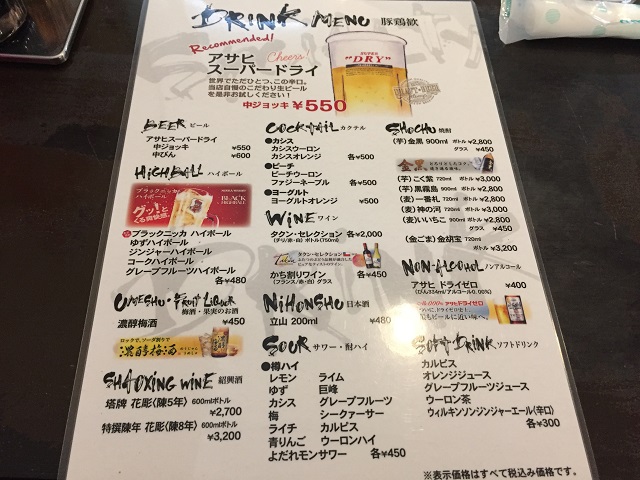 DRINK MENU 豚鶏歓
Recommended!
Cheers!
アサヒ
スーパードライ
世界でただひとつ、この辛口。
当店自慢のこだわり生ビール
を是非お試しください!
中ジョッキ ¥550
"DRY"
BEER ビール
アサヒスーパードライ
中ジョッキ ¥550
中びん ¥600
HIGHBALL ハイボール
ブラックニッカ
ハイボール
BLACK
ブラックニッカ ハイボール
ゆずハイボール
ジンジャーハイボール
コークハイボール
グレープフルーツハイボール
各¥480
UMESHU・FRUIT LIQUOR
梅酒・果実のお酒
濃醇梅酒 ¥450
ロックで、ソーダ割りで
濃醇梅酒
SHAOXING WINE 紹興酒
塔牌 花彫〈陳5年〉 600mlボトル
¥2,700
特撰陳年 花彫〈陳8年〉 600mlボトル
¥3,200
COCKTAIL カクテル
●カシス
カシスウーロン
カシスオレンジ 各¥500
●ピーチ
ピーチウーロン
ファジーネーブル 各¥500
●ヨーグルト
ヨーグルトオレンジ ¥500
WINE ワイン
タクン・セレクション 各¥2,000
(チリ/赤・白) ボトル(750ml)
タクン・セレクション
かち割りワイン ¥450
(フランス/赤・白) グラス
NIHONSHU 日本酒
立山 200ml ¥480
SOUR サワー・酎ハイ
●樽ハイ
レモン ライム
ゆず 巨峰
カシス グレープフルーツ
梅 シークァーサー
ライチ カルピス
青りんご ウーロンハイ
よだれモンサワー 各¥450
SHOCHU 焼酎
(芋)金黒 900ml ボトル ¥2,800
グラス ¥450
金黒
(芋)こく紫 720ml ボトル ¥3,000
(芋)黒霧島 900ml ボトル ¥2,800
(麦)一番札 720ml ボトル ¥2,800
(麦)神の河 720ml ボトル ¥3,000
(麦)いいちこ 900ml ボトル ¥2,800
(金ごま)金胡宝 720ml ボトル
¥3,200
NON-ALCOHOL ノンアルコール
アサヒ ドライゼロ ¥400
(びん334ml/アルコール0.00%)
SOFT DRINK ソフトドリンク
カルピス
オレンジジュース
グレープフルーツジュース
ウーロン茶
ウィルキンソンジンジャーエール(辛口)
各¥300
※表示価格はすべて税込み価格です。